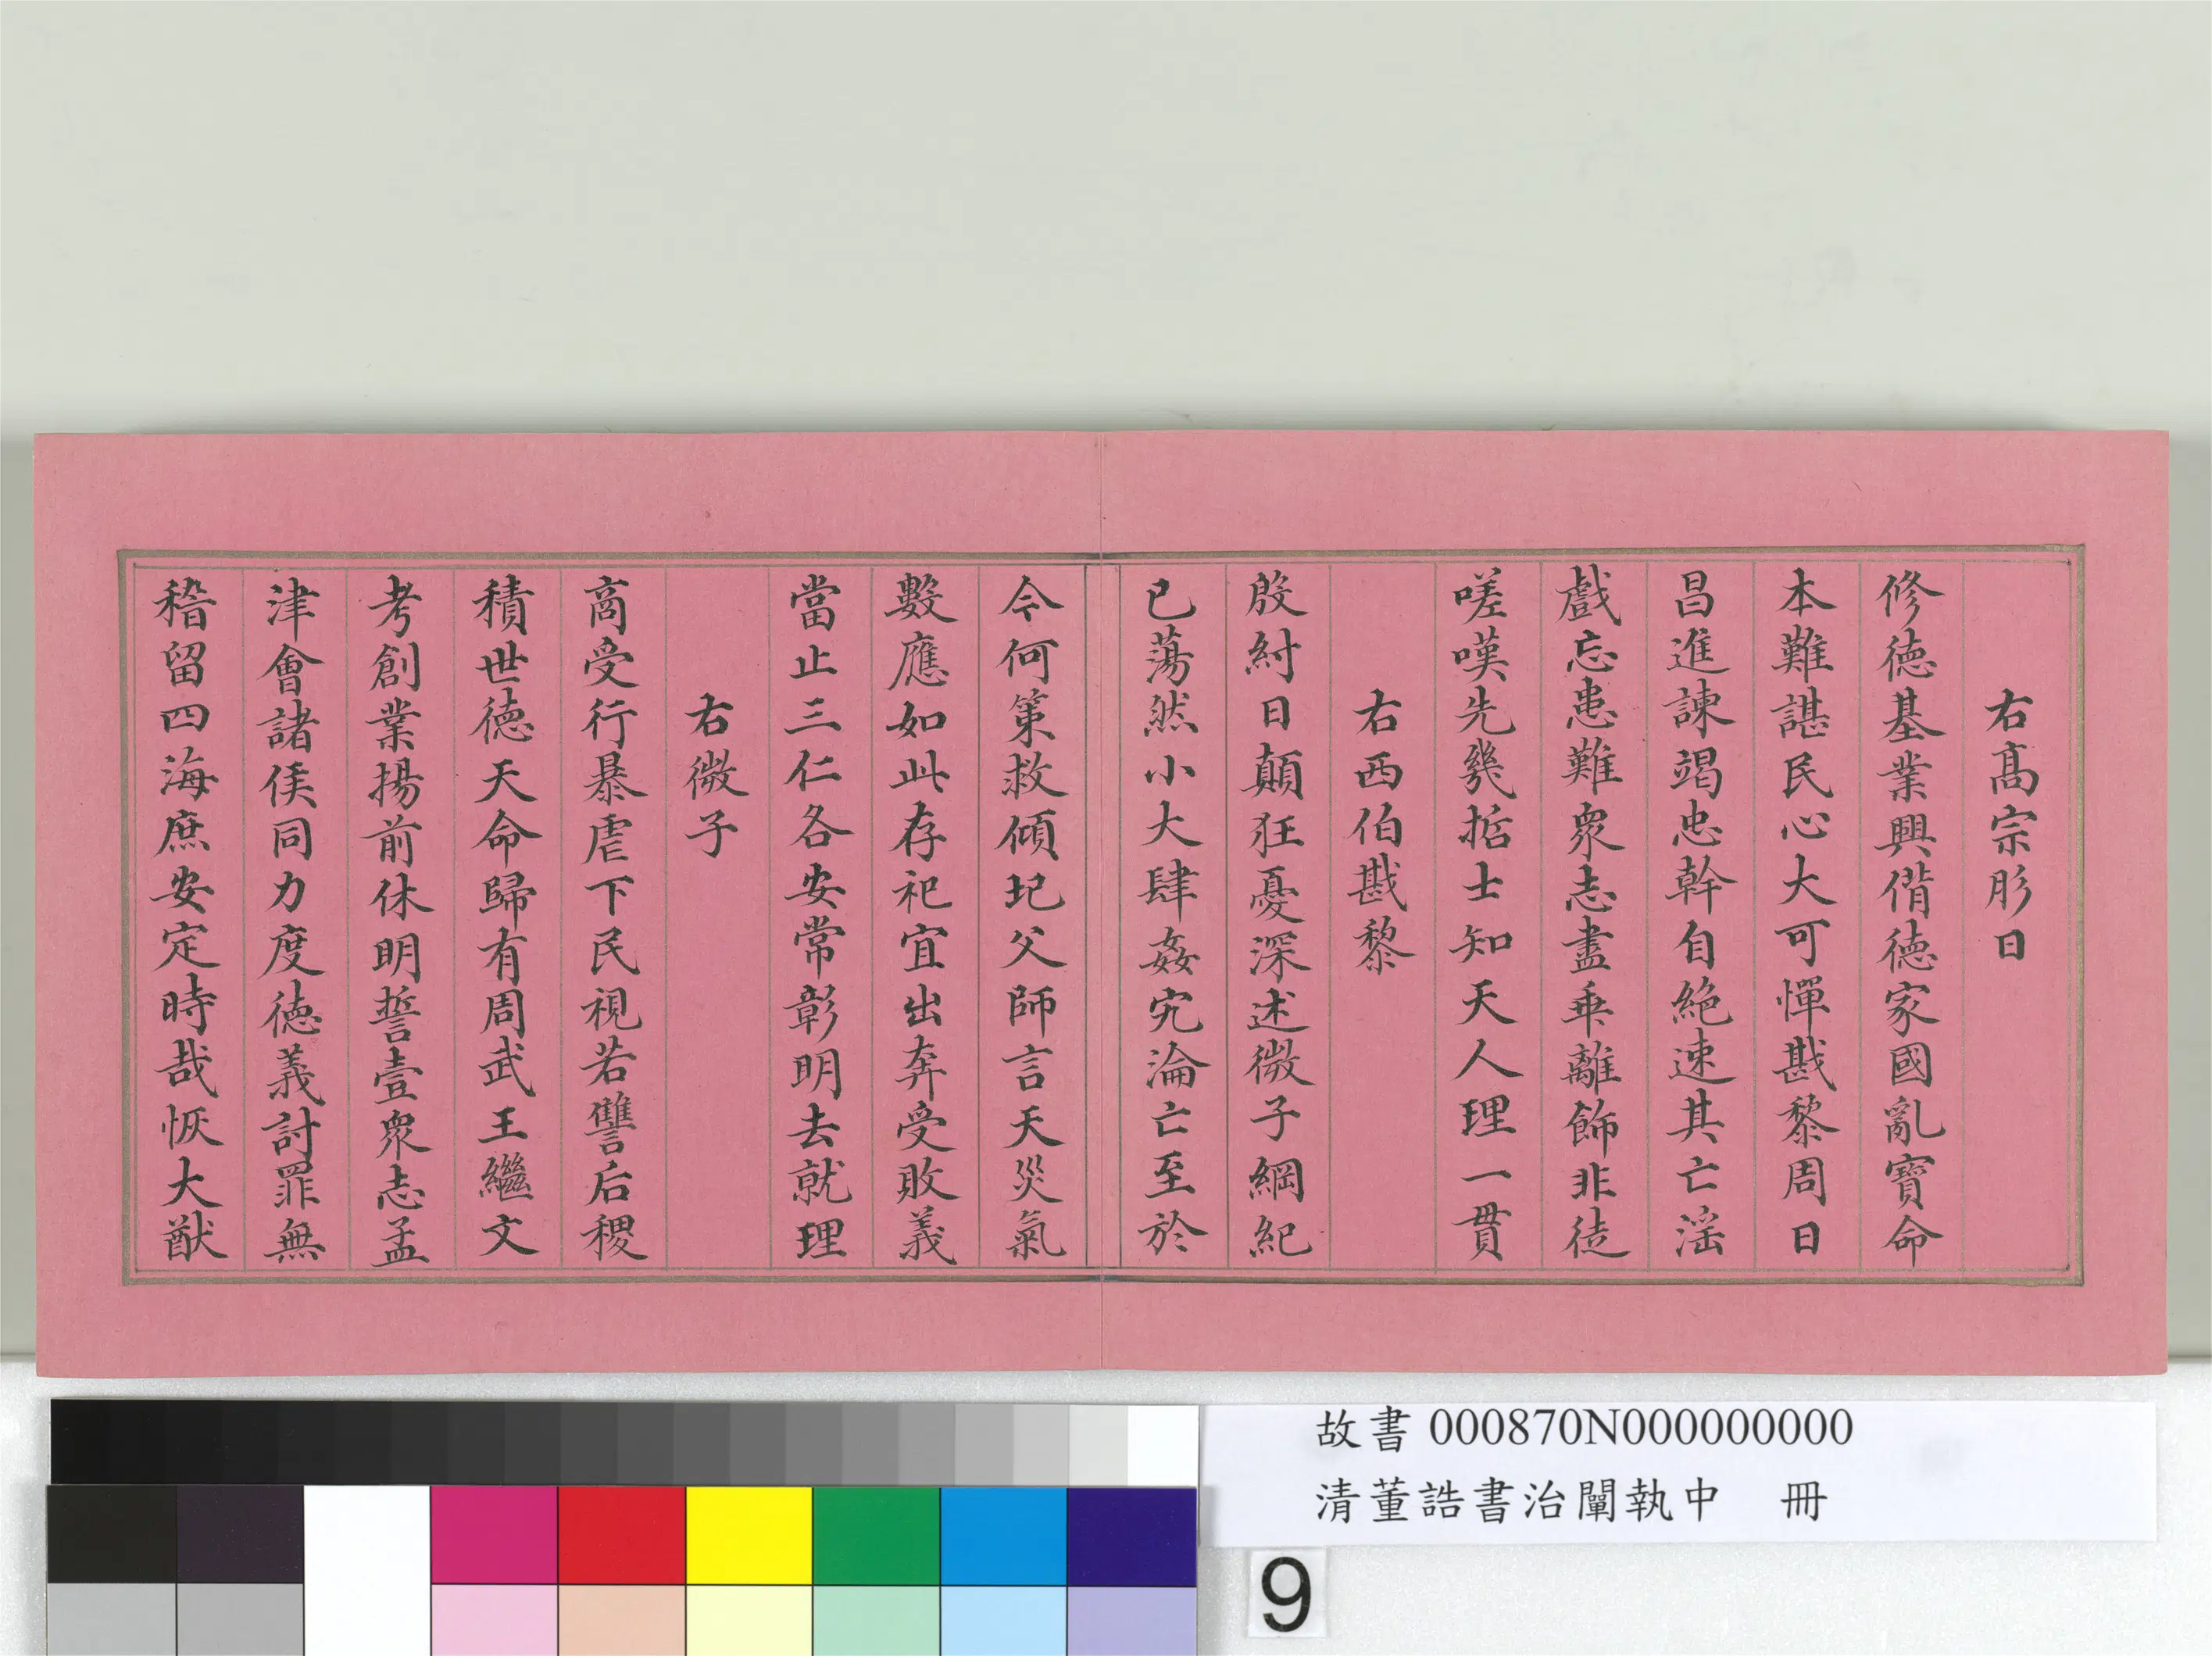 右髙宗肜日
修德基業興偕德家國亂寶命
本難諶民心大可憚戡黎周日
昌進諫竭忠幹自絶速其亡滛
戲忘患難衆志盡乖離飾非徒
嗟嘆先幾掂士知天人理一貫
右西伯戡黎
殷紂日顛狂憂深述微子綱紀
已蕩然小大肆姦宄淪亡至於
今何策救傾圮父師言天災氣
數應如此存祀宜出奔受敗義
當止三仁各安常彰明去就理
右微子
商受行暴虐下民視若讐后稷
積世德天命歸有周武王繼文
考創業揚前休明誓壹衆志孟
津會諸侯同力度德義討罪無
稽留四海庶安定時哉恢大猷
故書 000870N000000000
清董誥書治闡執中 冊
9